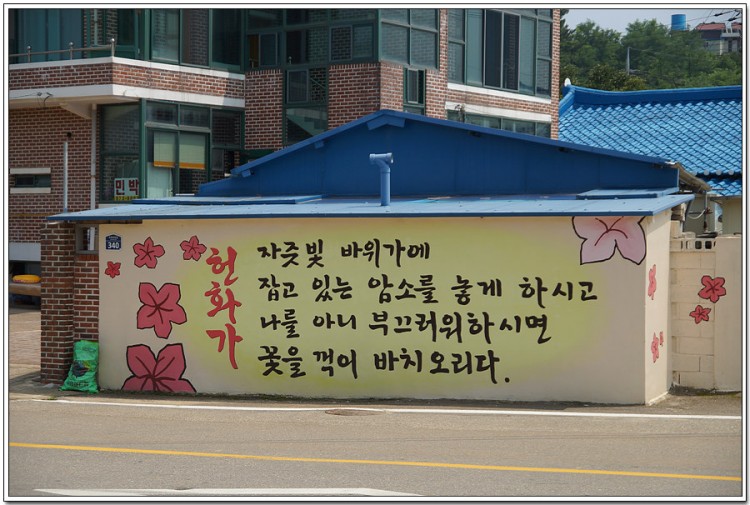 민박
340
헌화가
자줏빛 바위가에
잡고 있는 암소를 놓게 하시고
나를 아니 부끄러워하시면
꽃을 꺽어 바치오리다.